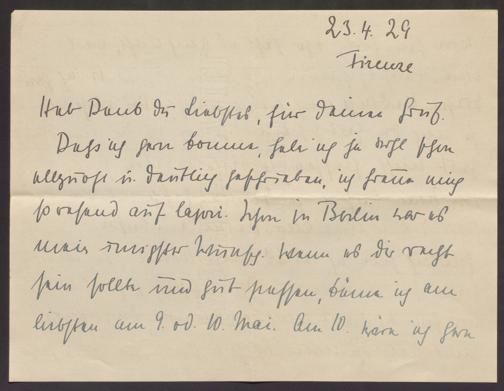 23.4.29
Firenze
Hab Dank du Liebster, für deinen Gruß.
Daß ich gern komme, hab ich ja wohl schon
allzuoft u. deutlich geschrieben, ich freue mich
auf Capri. Schon in Berlin war es
mein innigster Wunsch. Wenn es dir recht
sein sollte und gut passen, käme ich am
liebsten am 9. od. 10. Mai. Am 10. wäre ich gern